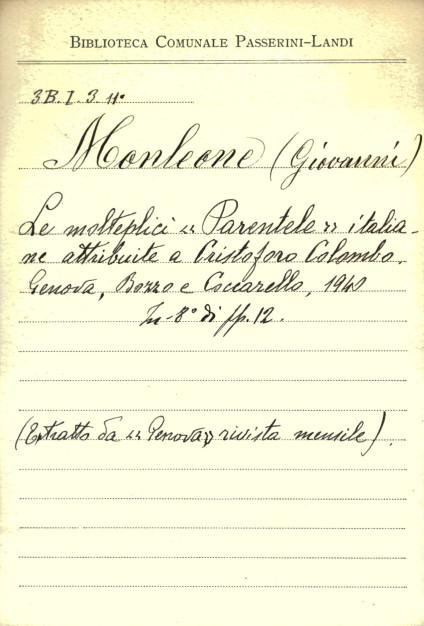 BIBLIOTECA COMUNALE PASSERINI-LANDI
3B. I. 3. 11.
Monleone (Giovanni)
Le molteplici « Parentele » italia-
ne attribuite a Cristoforo Colombo.
Genova, Bozzo e Coccarello, 1940
In-8° di pp. 12.
(Estratto da « Genova » rivista mensile).